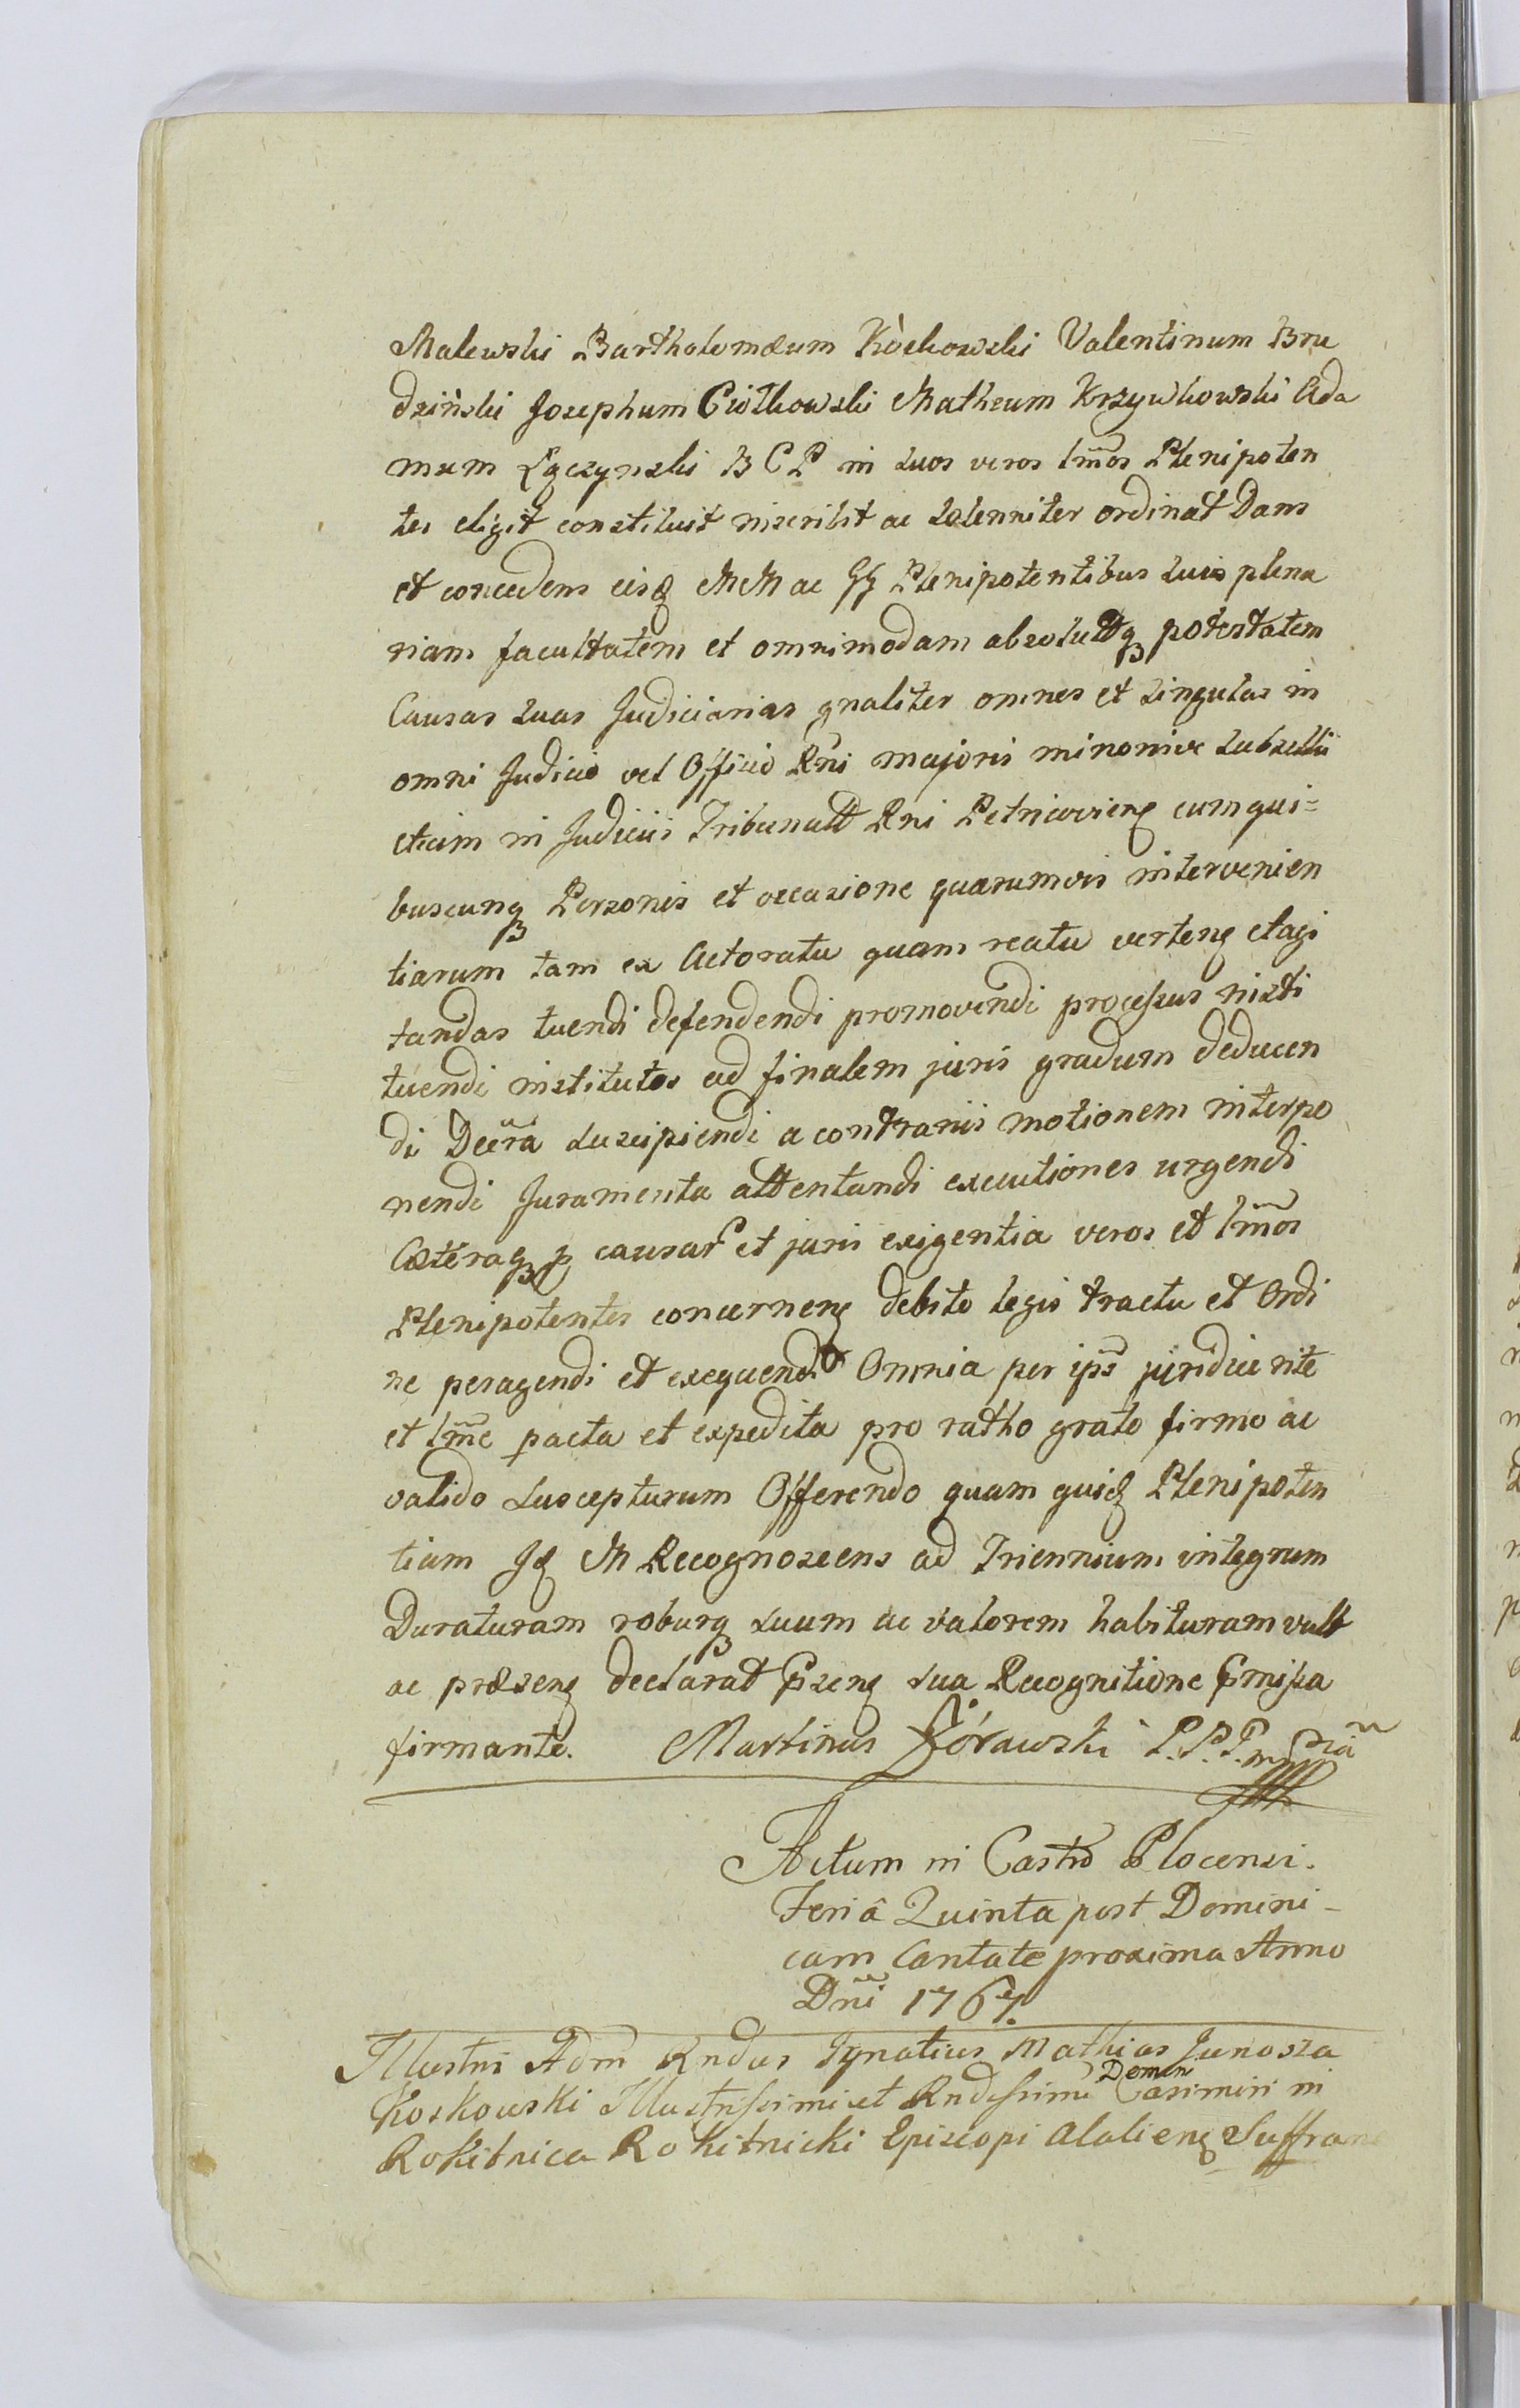 Malewski Bartholomæum Kòckowski Valentinum Bru
dziński Josephum Ciółkowski Matheum Krzywkowski Ada
mum Łączynski B C P in suos veros lm̃os Plenipoten
tes eligit constituit inscribit ac solenniter ordinat Dans
et concedens eisq MM ac GG Plenipotentibus suis plena
riam facultatem et omnimodam absolutāq potestatem
Causas suas Judiciarias gnaliter omnes et singulas in
omni Judicio vel Officio Rñi majoris minorisve subsellii
etiam in Judiciis Tribunalt Rni Petricovienς cum qui=
buscunq Personis et occasione quarumvis intervenien
tiarum tam ex Actoratu quam reatu vertenς et agi
tandas tuendi defendendi promovendi processus insti
tuendi institutos ad finalem juris gradum deducen
di Decr̃a suscipiendi a contrariis motionem interpo
nendi Juramenta attentandi executiones urgendi
Cæteraq p causar et juris exigentia veros et lm̃os
Plenipotentes concernenς debito legis tractu et Ordi
ne peragendi et exequendi Omnia per ips̃ juridice rite
et lm̃e pacta et expedita pro ratho grato firmo ac
valido suscepturum Offerendo quam quidς Plenipoten
tiam Idς M Recognoscens ad Triennium integrum
Duraturam roburq suum ac valorem habituram vult
ac præsenς declarat Prsenς sua Recognitione Prmissa
firmante. Martinus Żórawski P.P.P. mpria
Actum in Castro Plocensi.
Feriâ Quinta post Domini-
cam Cantate proxima Anno
Dñi 1767.
Illustris Adm Rndus Ignatius Mathias Junosza
Koskowski Illustrissimi et Rndissimi Domin Casimiri in
Rokitnica Rokitnicki Episcopi Alalienς Suffrane